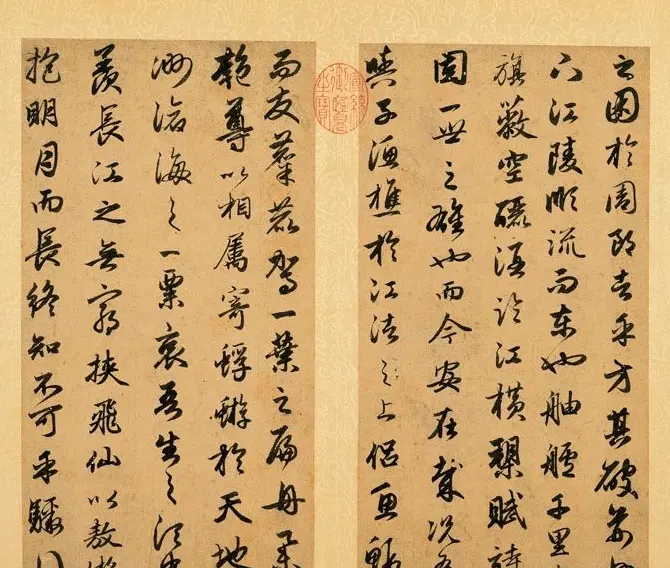 之困於周郎者乎方其破荊
下江陵順流而東也舳艫千里
旗蔽空釃酒臨江橫槊賦詩
固一世之雄也而今安在哉況吾
與子漁樵於江渚之上侶魚蝦
而友麋鹿駕一葉之扁舟舉
匏尊以相屬寄蜉蝣於天地
渺滄海之一粟哀吾生之須
羨長江之無窮挾飛仙以遨
抱明月而長終知不可乎驟
宣統御覽之寶